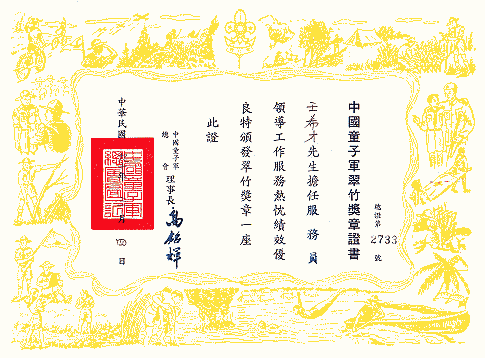 中國童子軍翠竹獎章證書
總證第2733號
王希才先生擔任服務員
領導工作服務熱忱績效優
良特頒發翠竹獎章一座
此證
中國童子軍
總會
理事長高銘輝
中華民國
月四日